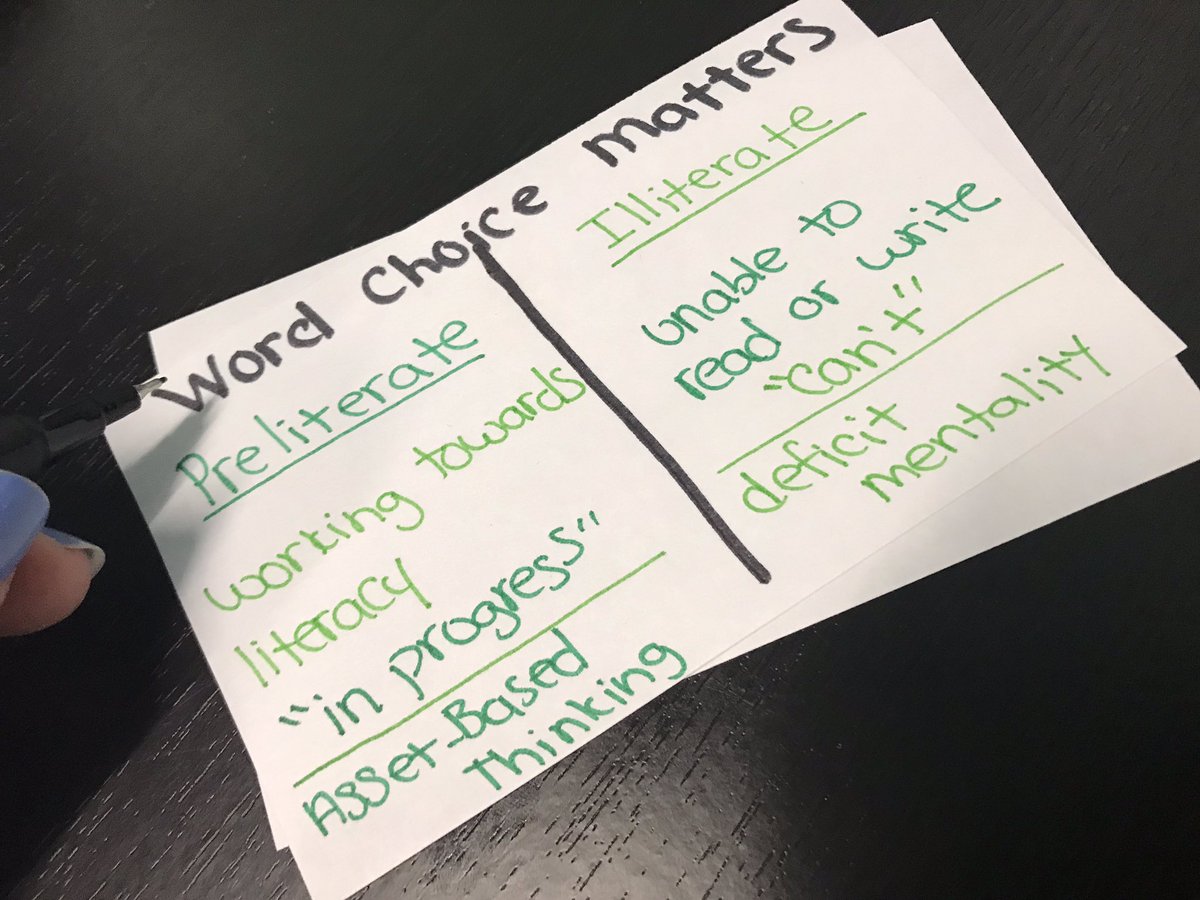 Word Choice matters
Preliterate
working towards
literacy
"in progress"
Asset-Based
thinking
Illiterate
unable to
read or write
"can't"
deficit
mentality